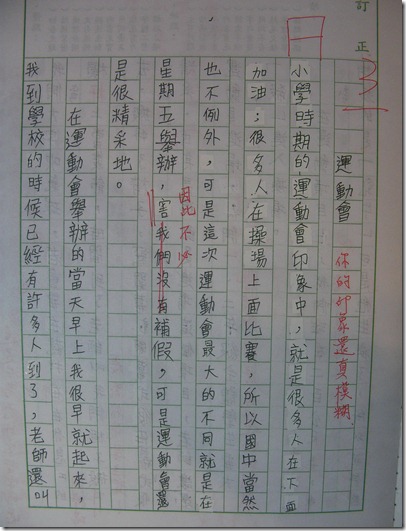 訂正
你的印象還真模糊
運動會
小學時期的運動會印象中,就是很多人在下面
加油;很多人在操場上面比賽,所以國中當然
也不例外,可是這次運動會最大的不同就是在
因此不必
星期五舉辦,害我們沒有補假,可是運動會還
是很精采地。
在運動會舉辦的當天早上我很早就起來,
我到學校的時候已經有許多人到了,老師還叫